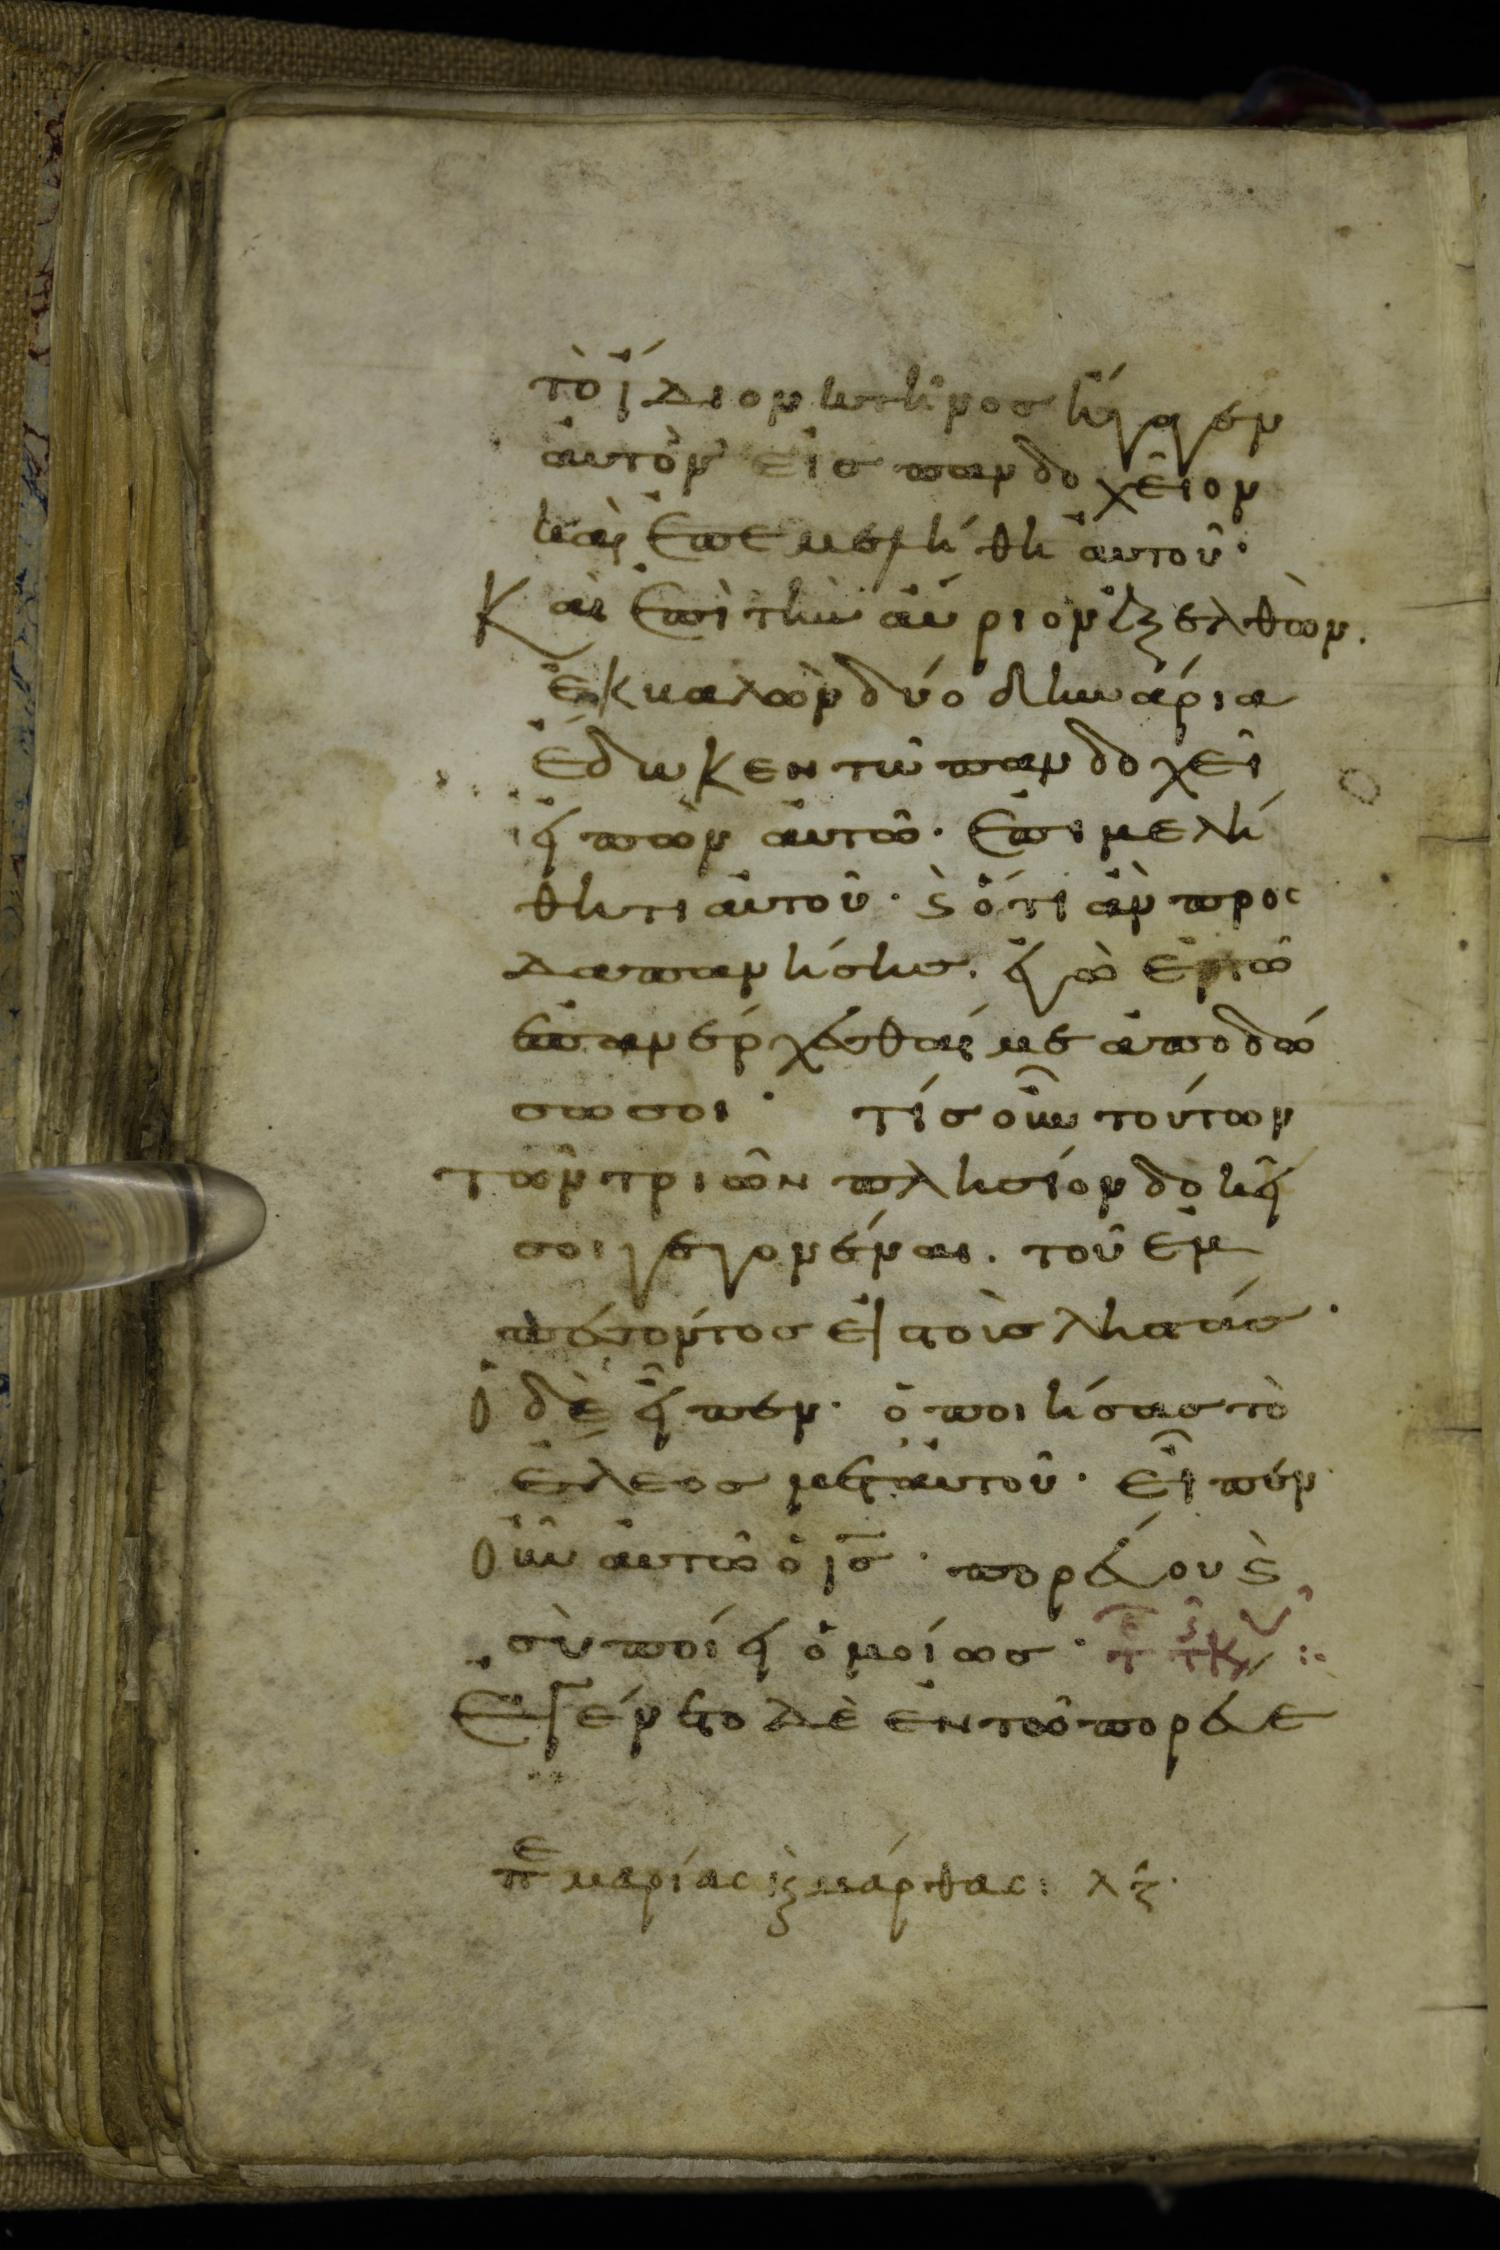 τὸ ἴδιον κτῆνος ἤγαγεν
αὐτὸν εἰς πανδοχεῖον
καὶ ἐπεμελήθη αὐτοῦ·
Καὶ ἐπὶ τὴν αὔριον ἐξελθὼν.
ἐκκαλὼν δύο δηνάρια
ἔδωκεν τῶ πανδοχεῖ
εἰπὼν αὐτῶ· ἐπιμελή
θητι αὐτοῦ· ϗ ὅτι ἂν προς
δαπανήσης. ἐγὼ ἐν τῶ
ἐπανέρχεσθαί με ἀποδώ
σω σοι· τίς οὖν τούτων
τῶν τριῶν πλησίον δοκεῖ
σοι γεγονέναι. τοῦ ἐμ
πεσόντος εἰς τοὺς ληστάς·
ὁ δὲ εἶπεν· ὁ ποιήσας τὸ
ἔλεος μετ' αὐτοῦ· εἶπεν
οὖν αὐτῶ ὁ ις· πορεύου ϗ
σὺ ποίει ὁμοίως·
Ἐγένετο δὲ ἐν τῶ πορεύε
πε μαρίας ϗ μάρθας: λζ·